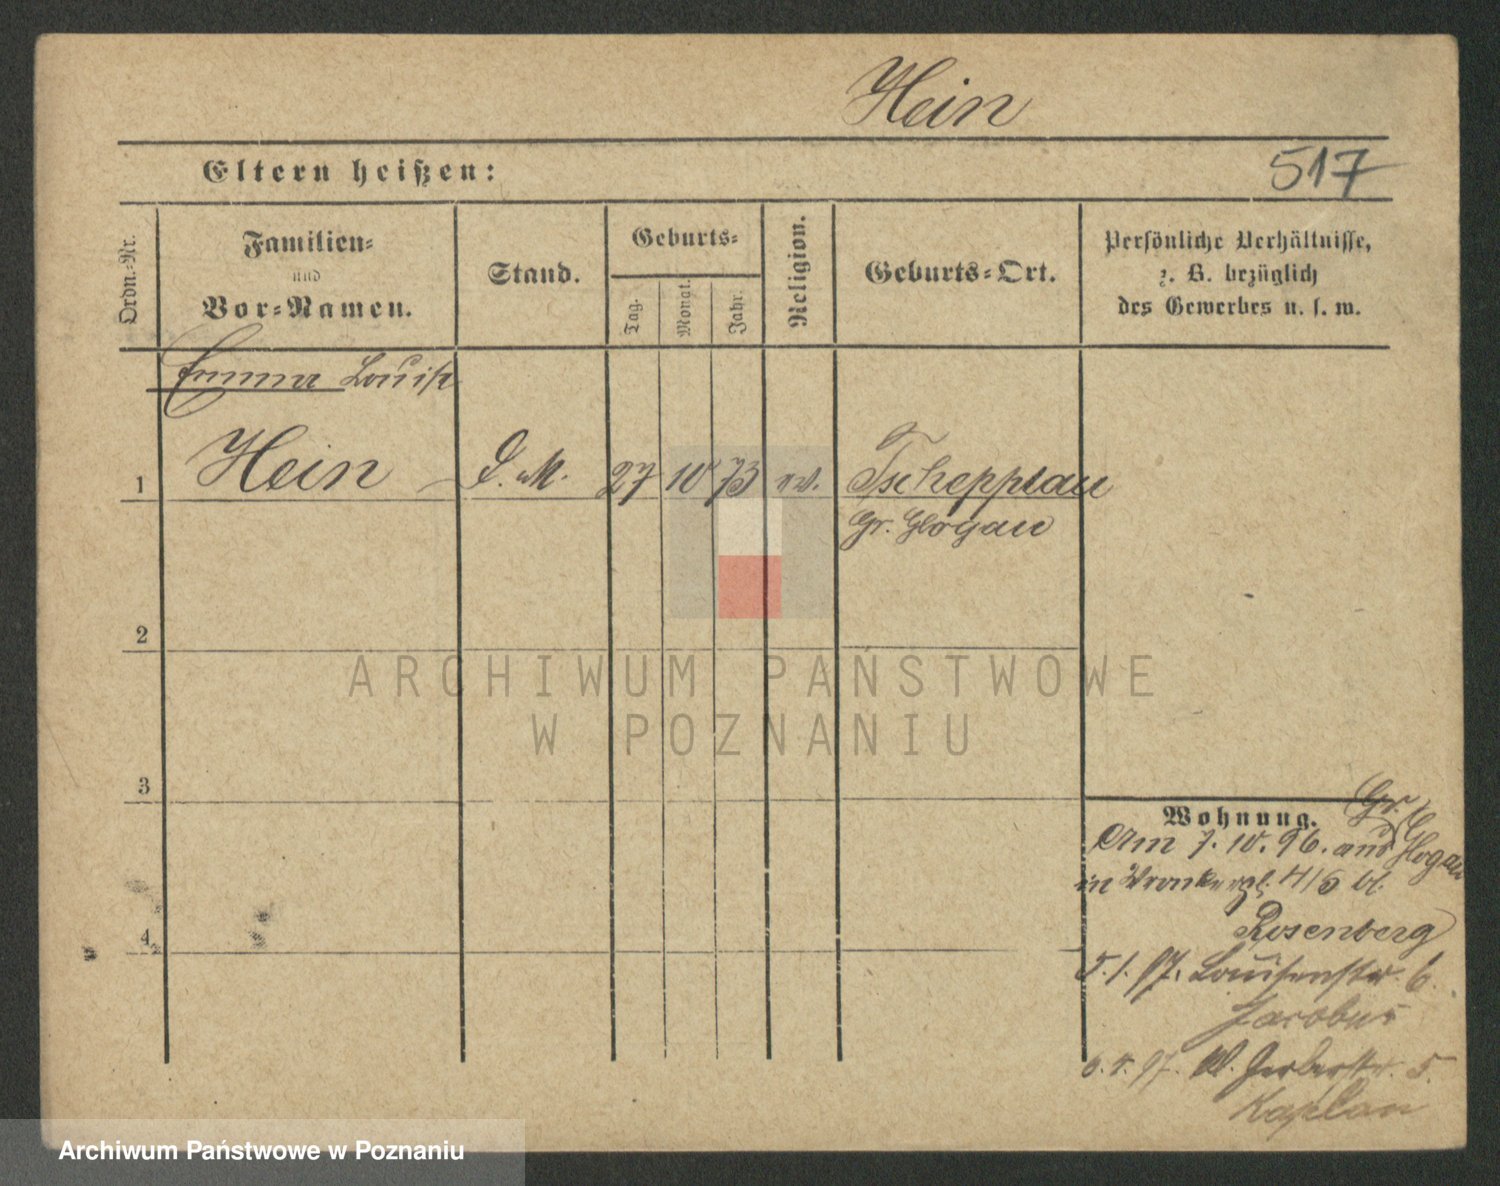 Hein
Eltern heißen:
517
Ordn.-Nr.
Familien-
und
Vor-Namen.
Stand.
Geburts-
Tag.
Monat.
Jahr.
Religion.
Geburts-Ort.
Persönliche Verhältnisse,
z. B. bezüglich
des Gewerbes u. s. w.
Emma Louise
1 Hein D. M. 27 10 73 ev. Tschepplau
Gr. Glogau
2
3
4
ARCHIWUM PAŃSTWOWE
W POZNANIU
Wohnung.
Am 7. 10. 96. aus Gr. Glogau
in Wronkerpl. 4/5 bl.
Rosenberg
5. 1. 97. Louisenstr. 6.
Jacobus
6. 4. 97. Kl. Gerberstr. 5.
Kaplan
Archiwum Państwowe w Poznaniu